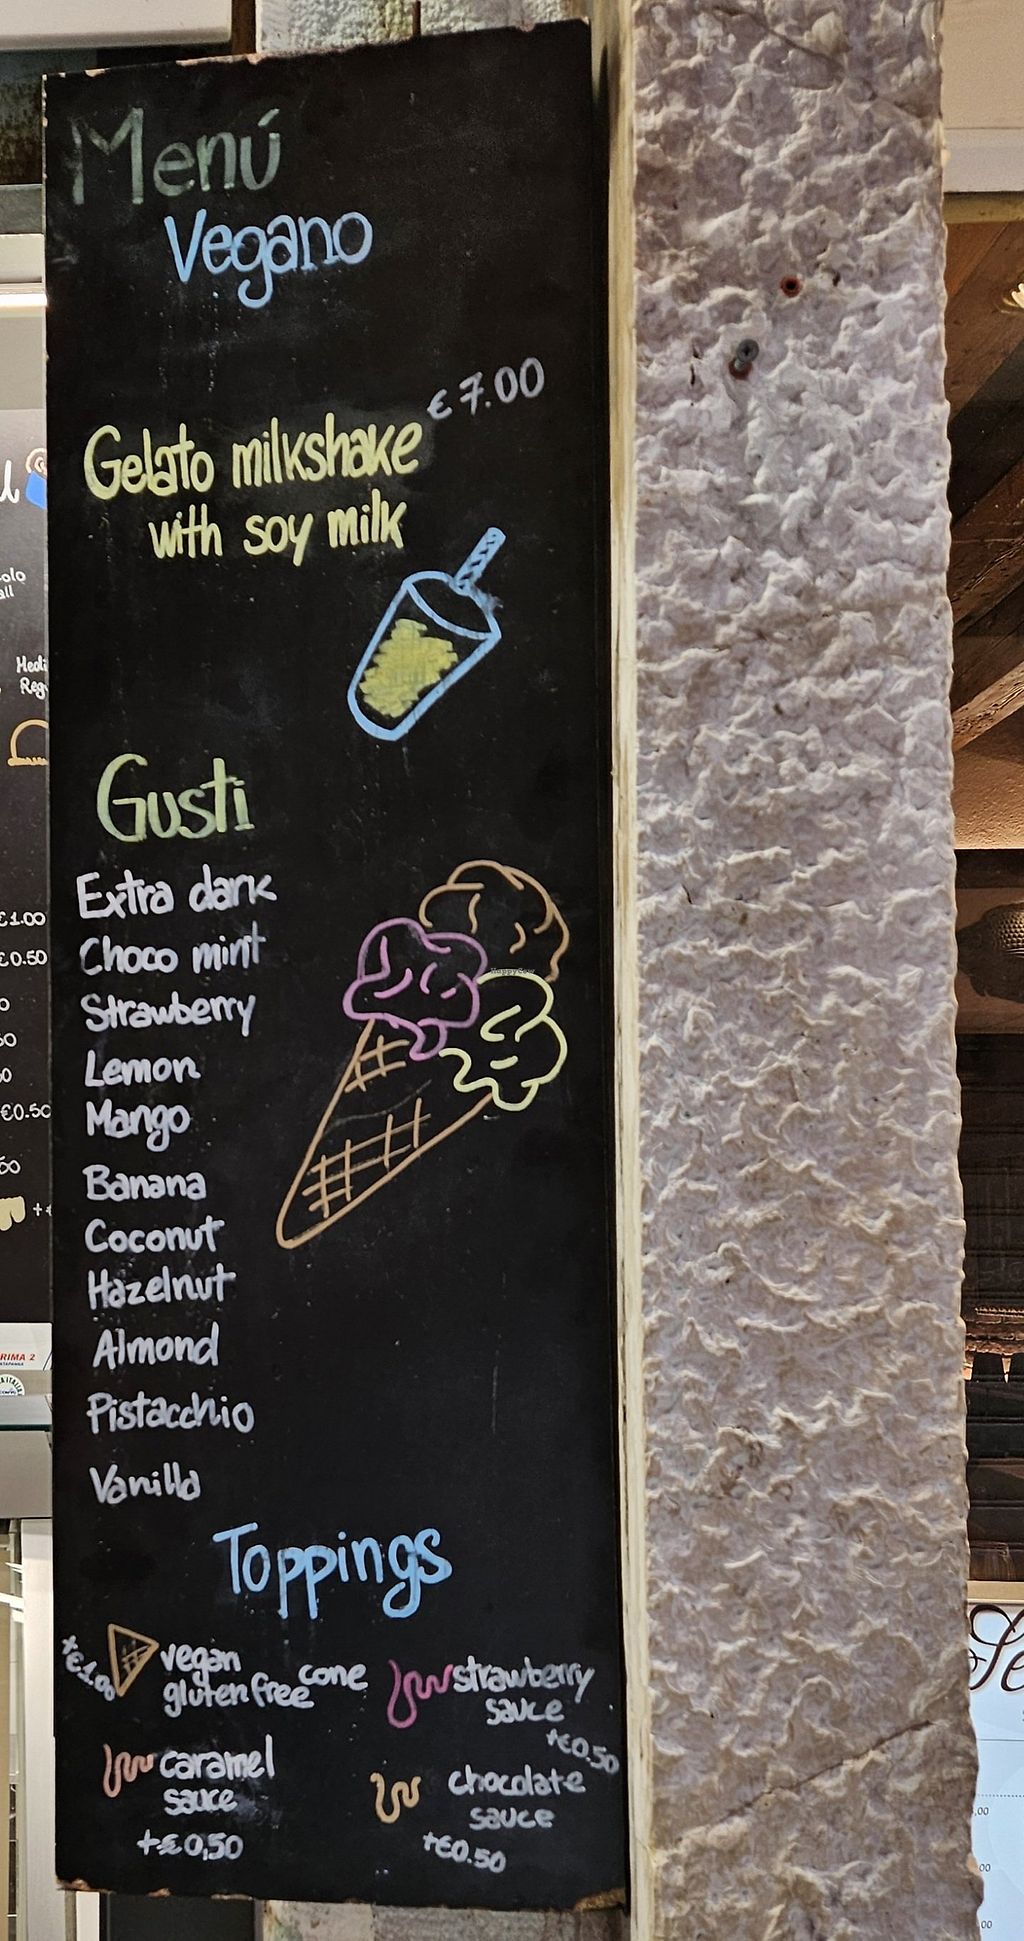 Menú
Vegano
€ 7.00
Gelato milkshake
with soy milk
Gusti
Extra dark
Choco mint
Strawberry
Lemon
Mango
Banana
Coconut
Hazelnut
Almond
Pistacchio
Vanilla
HappyCow
Toppings
+€1.00
vegan
gluten free cone
strawberry
sauce
+€0.50
caramel
sauce
+€0,50
chocolate
sauce
+€0.50
€1.00
€0.50
€0.50
RIMA 2